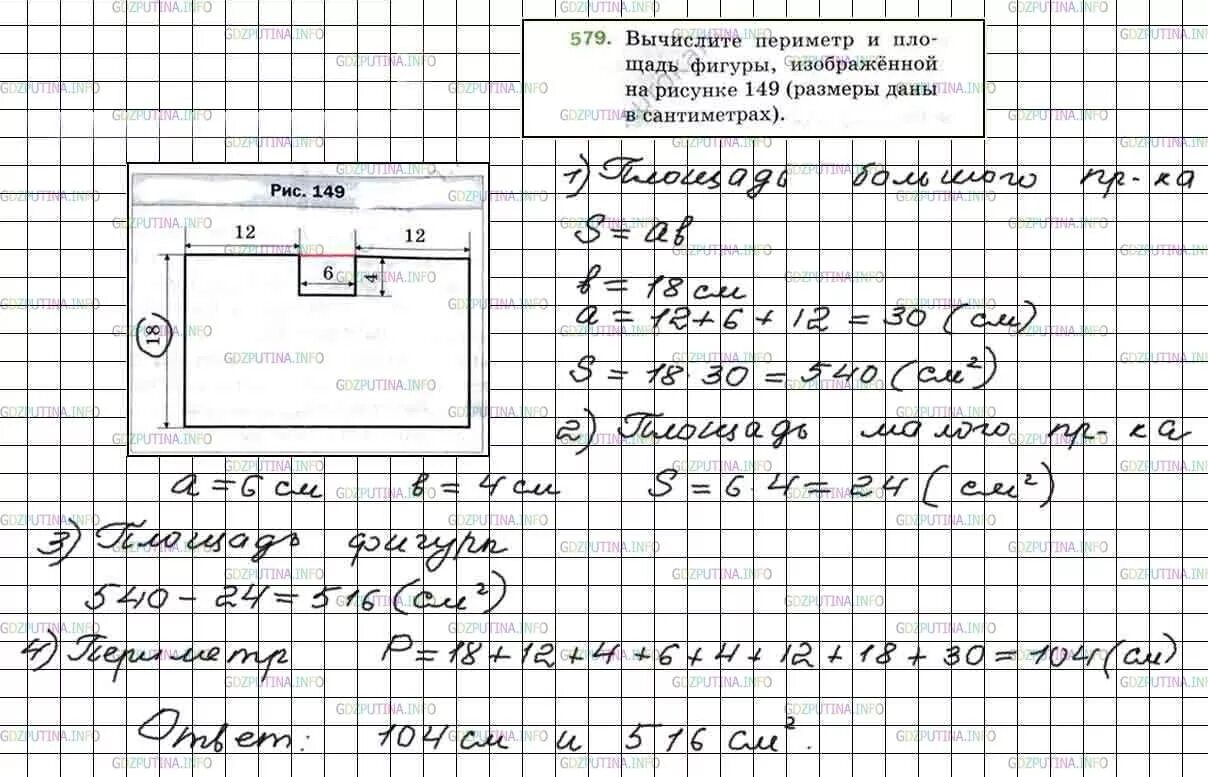 579. Вычислите периметр и пло-
щадь фигуры, изображённой
на рисунке 149 (размеры даны
в сантиметрах).
Рис. 149
12
12
6
4
18
1) Площадь большого пр-ка
S = ab
b = 18 см
a = 12 + 6 + 12 = 30 (см)
S = 18 · 30 = 540 (см²)
2) Площадь малого пр-ка
a = 6 см b = 4 см S = 6 · 4 = 24 (см²)
3) Площадь фигуры
540 - 24 = 516 (см²)
4) Периметр P = 18 + 12 + 4 + 6 + 4 + 12 + 18 + 30 = 104 (см)
Ответ: 104 см и 516 см².
GDZPUTINA.INFO